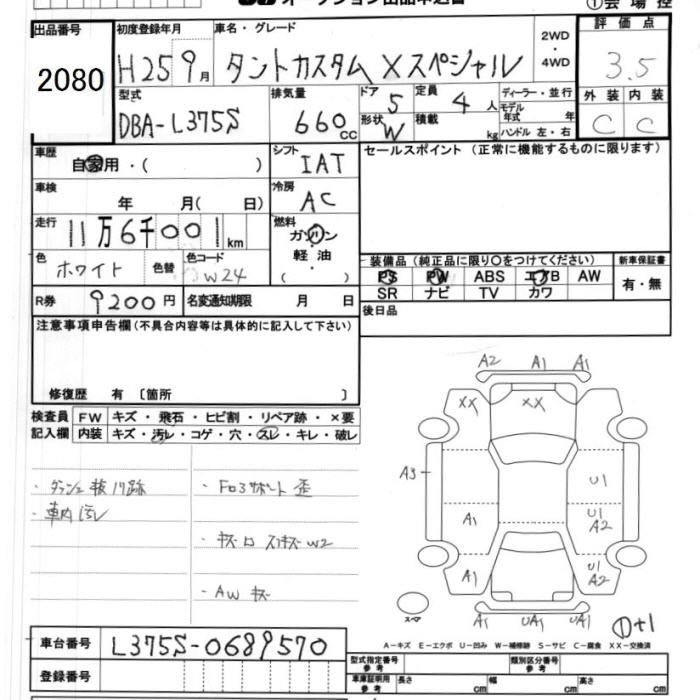 出品番号 2080
初度登録年月 H25 9月
車名・グレード タントカスタム Xスペシャル
2WD ・ 4WD
評価点 3.5
型式 DBA-L375S
排気量 660cc
ドア 5 形状 W
定員 4人 積載 kg
ディーラー・並行
モデル年式 年
ハンドル 左・右
外装 内装
C C
車歴 自家用・( )
シフト IAT
セールスポイント (正常に機能するものに限ります)
車検 年 月( 日)
冷房 AC
走行 11万6千001km
燃料 ガソリン 軽油 ( )
色 ホワイト 色替
色コード W24
装備品 (純正品に限り○をつけてください)
新車保証書
PS PW ABS エアB AW
有・無
SR ナビ TV カワ
R券 9200円 名変通知期限 月 日
後日品
注意事項申告欄(不具合内容等は具体的に記入して下さい)
修復歴 有〔箇所 〕
検査員 FW キズ・飛石・ヒビ割・リペア跡・×要
記入欄 内装 キズ・汚レ・コゲ・穴・スレ・キレ・破レ
A2 A1 A1
XX XX
・車内汚レ
A3 U1
A1 U1 A2
・AW キズ
A1 U1 A2
スペア
A1 UA1 UA1
①+1
A-キズ E-エクボ U-凹み W-補修跡 S-サビ C-腐食 XX-交換済
車台番号 L375S-0689570
型式指定番号 参考 類別区分番号 参考
登録番号
車庫証明用 参考 長さ cm 幅 cm 高さ cm